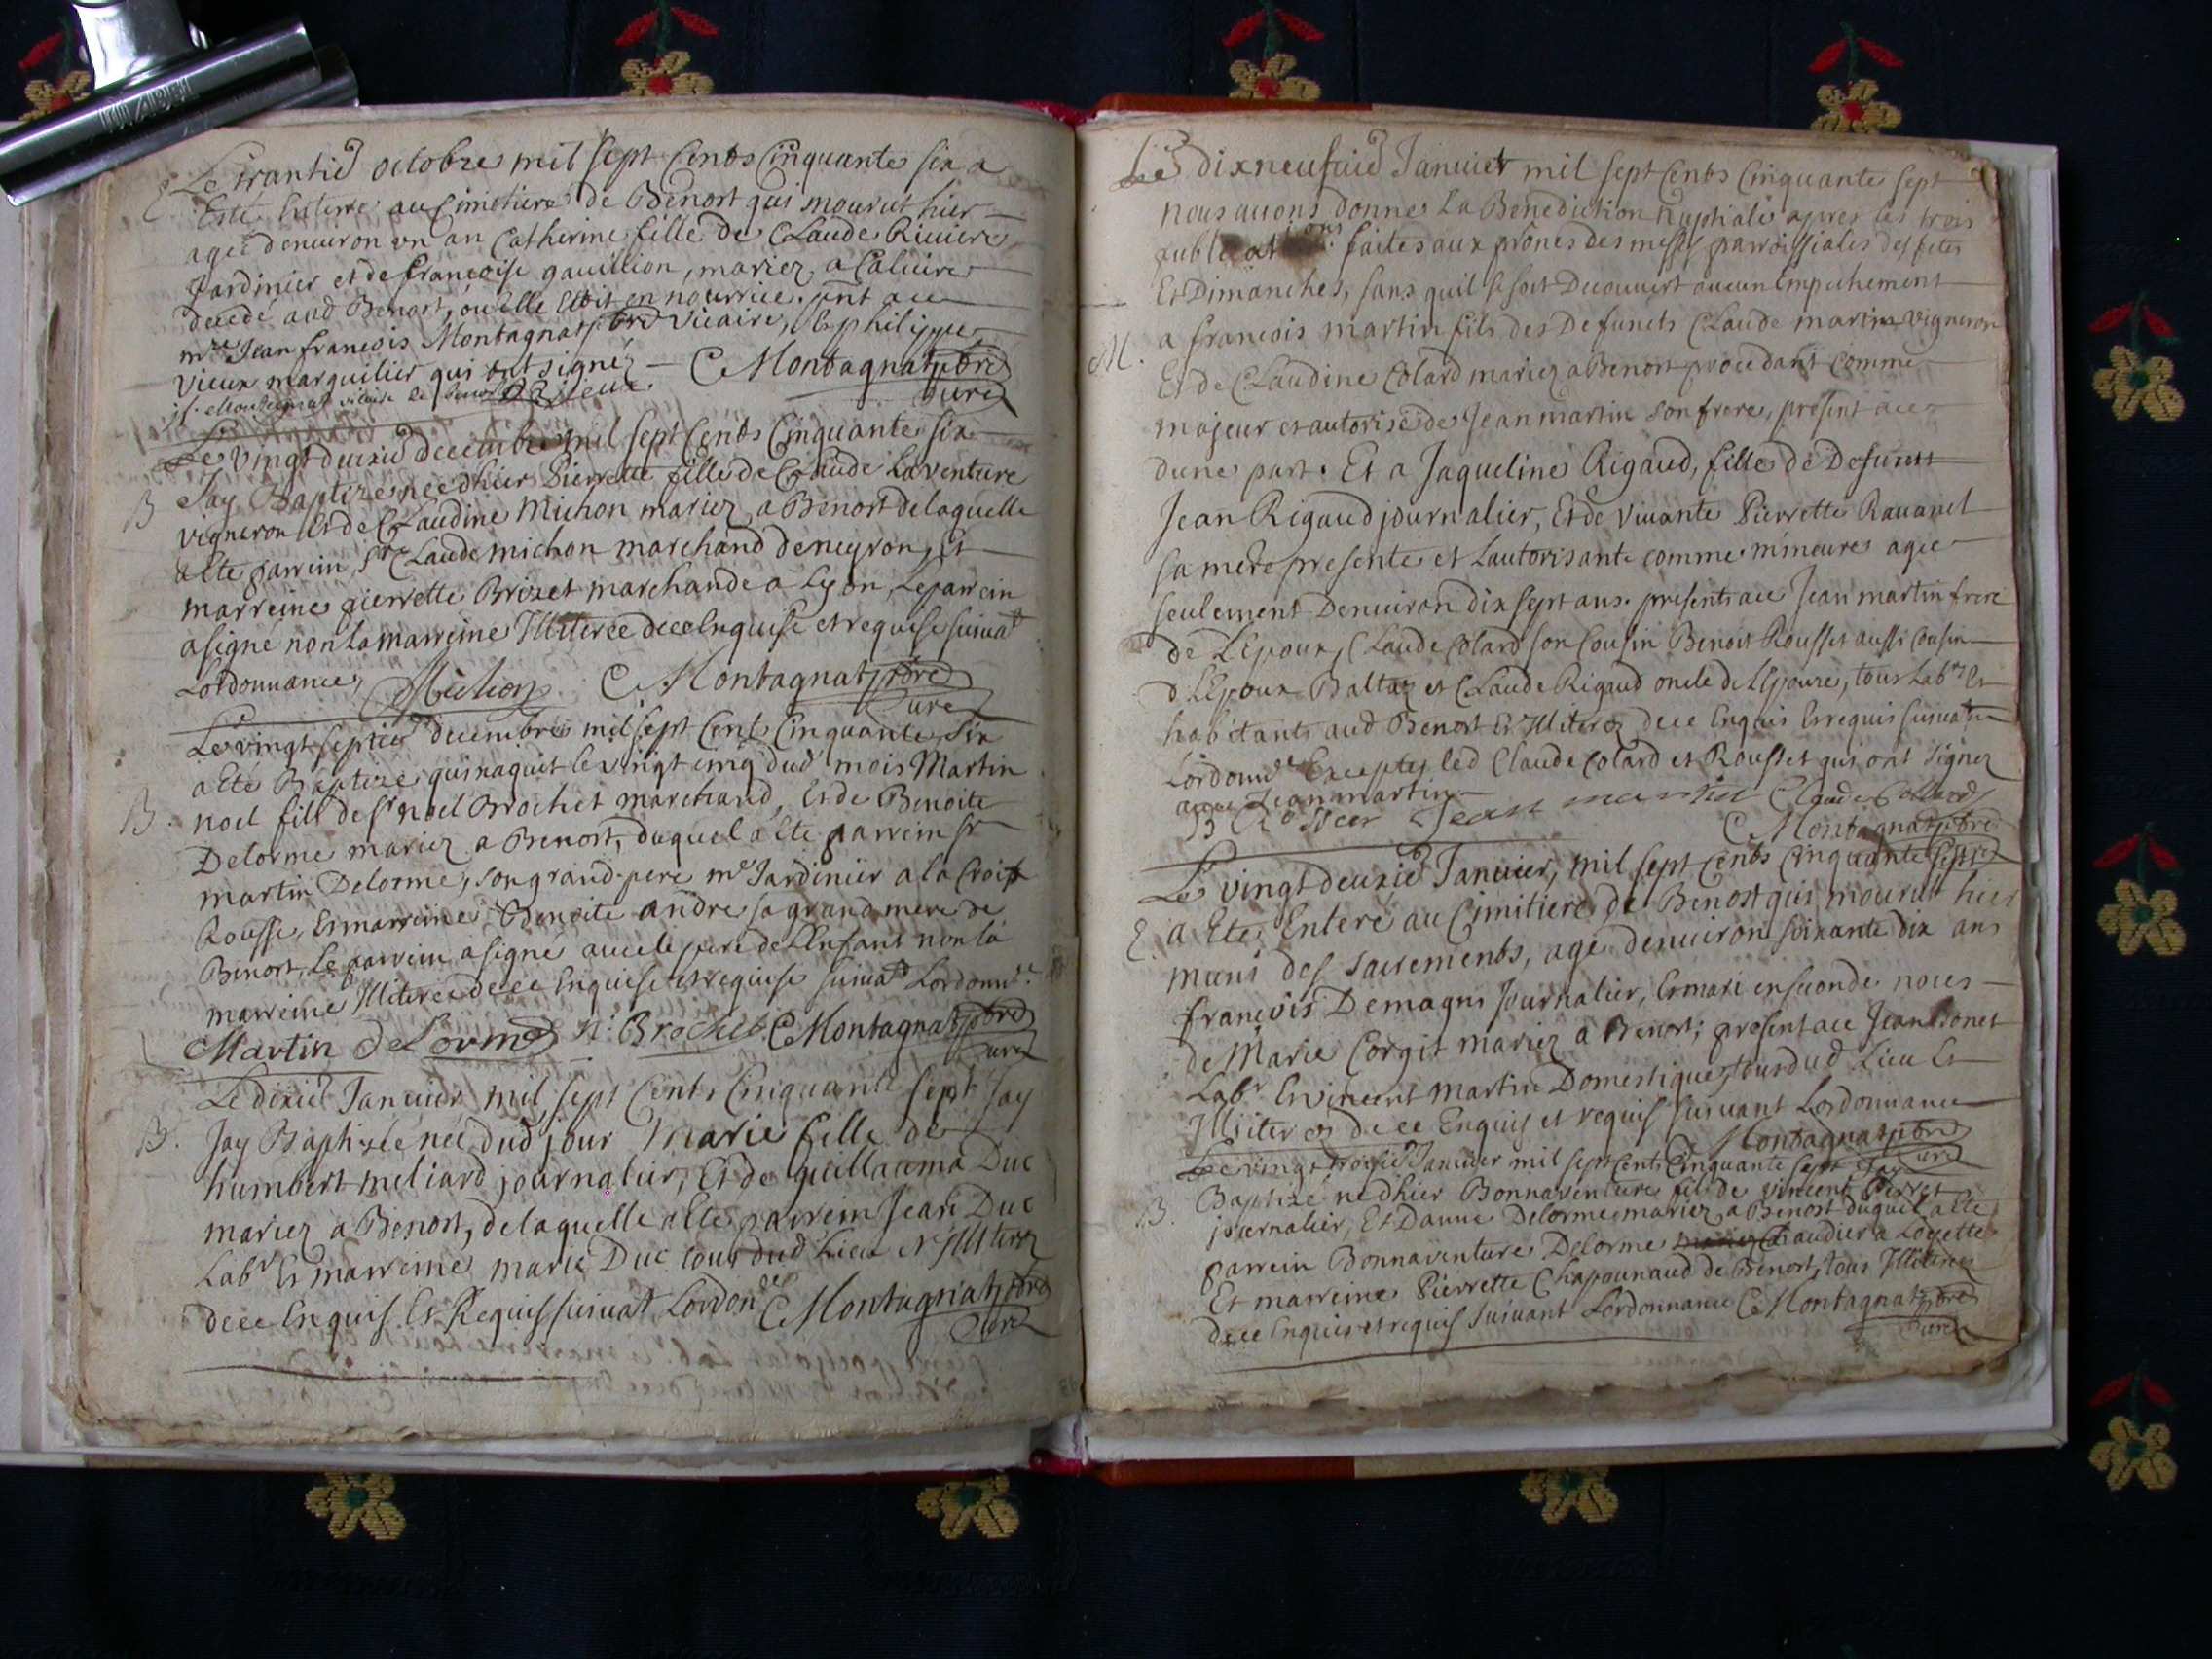 Le trantie octobre mil sept Cents Cinquante six a
E. Esté Enterré au Cimetiere de Benost qui mourut hier
agée denuiron un an Catherine fille de Claude Riuiere
Jardinier et de francoise gauillion, mariez a Caluire
decedé aud Benost, ou elle Etoit en nourrice. pnt a ce
mre Jean francois Montagnat pbre Vicaire, le philippe
Vieux marguilier qui ont signéz — C Montagnat pbre
j f. Montagnat vicaire Vieux. Curé
Le vingtdeuxie decembre mil sept Cents Cinquante six
B Jay Baptizee née dhier Pierrette fille de Claude Laventure
vigneron Et de Claudine Michon mariez a Benost delaquelle
a Ete parrein, Sr Claude michon marchand de neyron, Et
marreine pierrette Brizet marchande a Lyon, Le parrein
a signé non La marreine Illiterée de ce Enquise et requise suiuat
Lordonnance, Michon C Montagnat pbre
Curé
Le vingt septie decembre mil sept Cents Cinquante Six
a Eté Baptize qui naquit le vingt cinq dud mois Martin
B. noel fils de sr noel Brochet marchand, Et de Benoite
Delorme mariez a Benost, duquel a Ete parrein sr
martin Delorme, son grand-pere mre Jardinier a la Croix
Rousse, Et marreine Benoite andre sa grand mere de
Benost, Le parrein a signé auec le pere de LEnfant non la
marreine Illiterée de ce Enquise et requise suiuat Lordonnce.
Martin deLorme N. Brochet C Montagnat pbre
Curé
Le dixie Januier mil sept Cents Cinquante sept Jay
B. Jay Baptizée née dud jour Marie fille de
humbert meliard journalier, Et de guillauma Duc
mariez a Benost, delaquelle a Ete parrein Jean Duc
Labr Et marreine marie Duc tous dud Lieu et Illiterez
de ce Enquis Et Requis suiuat Lordonce C Montagnat pbre
Curé
Le dixneufuie Januier mil sept Cents Cinquante sept
nous auons donné La Benediction nuptiale apres les trois
publications faites aux prônes des messes parroissiales des fetes
Et Dimanches, sans quil se soit Decouuert aucun Empechement
M. a francois martin fils des Defuncts Claude martin vigneron
Et de Claudine Colard mariez a Benost procedant comme
majeur et autorisé de Jean martin son frere, present a ce
dune part. Et a Jaqueline Rigaud, fille de Defunct
Jean Rigaud journalier, Et de viuante Pierrette Rauanel
sa mere presente et Lautorisante comme mineure agée
seulement Denuiron dix sept ans. presents a ce Jean martin frere
de LEpoux, Claude Colard son Cousin Benoit Rousset aussi Cousin
d LEpoux Baltaz et Claude Rigaud oncle de LEpouse, tous Labrs Et
habitants aud Benost Et Illiterez de ce Enquis Et requis suiuat
Lordonnce Exceptez led Claude Colard et Rousset qui ont signez
auec Jean martin
B Rosset Jean martin Claude Collard
C Montagnat pbre
Le vingtdeuxie Januier, mil sept Cents Cinquante sept
E. a Ete Enteré au Cimitiere de Benost qui mourut hier
muni des sacrements, agé denuiron soixante dix ans
francois Demagns Journalier, Et mari en seconde noces
de Marie Corgit mariez a Benost; present a ce Jean Bonet
Labr Et vincent martin Domestique, tous dud Lieu Et
Illiterez de ce Enquis et requis suiuant Lordonnance
C Montagnat pbre
Curé
Le vingt troisie Januier mil sept Cents Cinquante sept Jay
B. Baptizé né dhier Bonnaventure fils de vincent Perret
journalier, Et Danne Delorme mariez a Benost duquel a Ete
parrein Bonnaventure Delorme a Loyette
Et marreine Pierrette Chapounaud de Benost, tous Illiterez
de ce Enquis et requis suiuant Lordonnance C Montagnat pbre
Curé